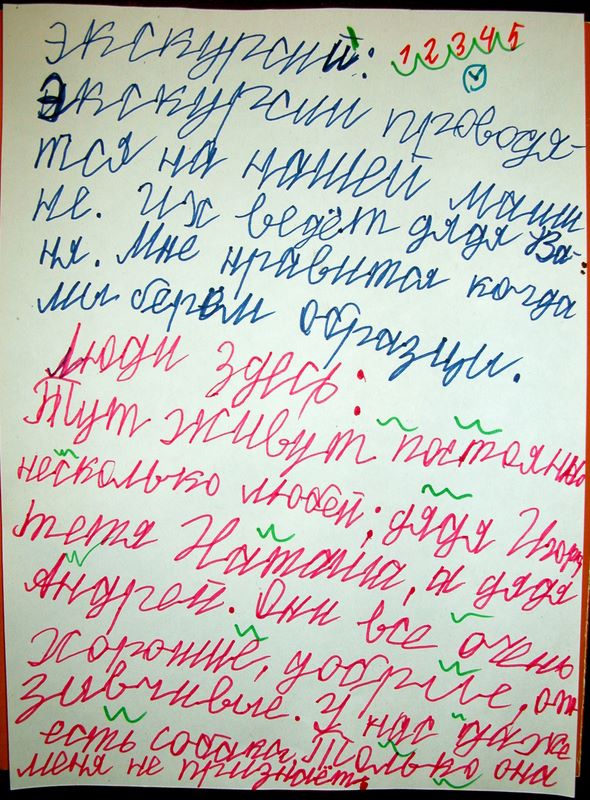 Экскурсий: 1 2 3 4 5
Экскурсии проводя-
тся на нашей маши
не. Их ведёт дядя Ва-
ня. Мне нравится когда
мы берём образцы.
Люди здесь:
Тут живут постоянно
несколько людей: дядя Игорь,
тетя Наташа, и дядя
Андрей. Они все очень
хорошие, добрые, от
зывчивые. У нас даже
есть собака. Только она
меня не признаёт.